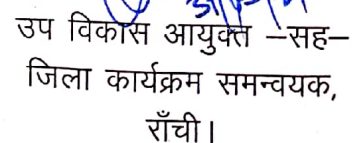 उप विकास आयुक्त –सह–
जिला कार्यक्रम समन्वयक,
राँची।